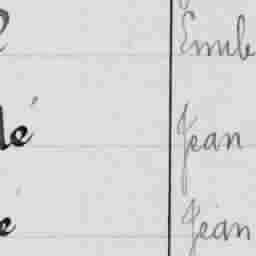 Emile
lé Jean
é Jean